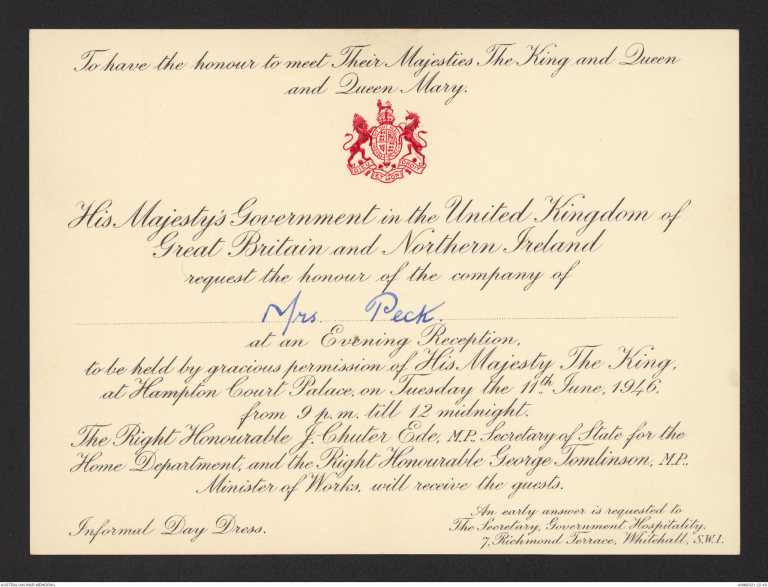 To have the honour to meet Their Majesties The King and Queen
and Queen Mary.
DIEU ET MON DROIT
His Majesty's Government in the United Kingdom of
Great Britain and Northern Ireland
request the honour of the company of
Mrs. Peck.
at an Evening Reception,
to be held by gracious permission of His Majesty The King,
at Hampton Court Palace, on Tuesday the 11th June, 1946,
from 9 p.m. till 12 midnight.
The Right Honourable J. Chuter Ede, M.P. Secretary of State for the
Home Department, and the Right Honourable George Tomlinson, M.P.,
Minister of Works, will receive the guests.
Informal Day Dress.
An early answer is requested to
The Secretary, Government Hospitality,
7, Richmond Terrace, Whitehall, S.W.1.
AUSTRALIAN WAR MEMORIAL